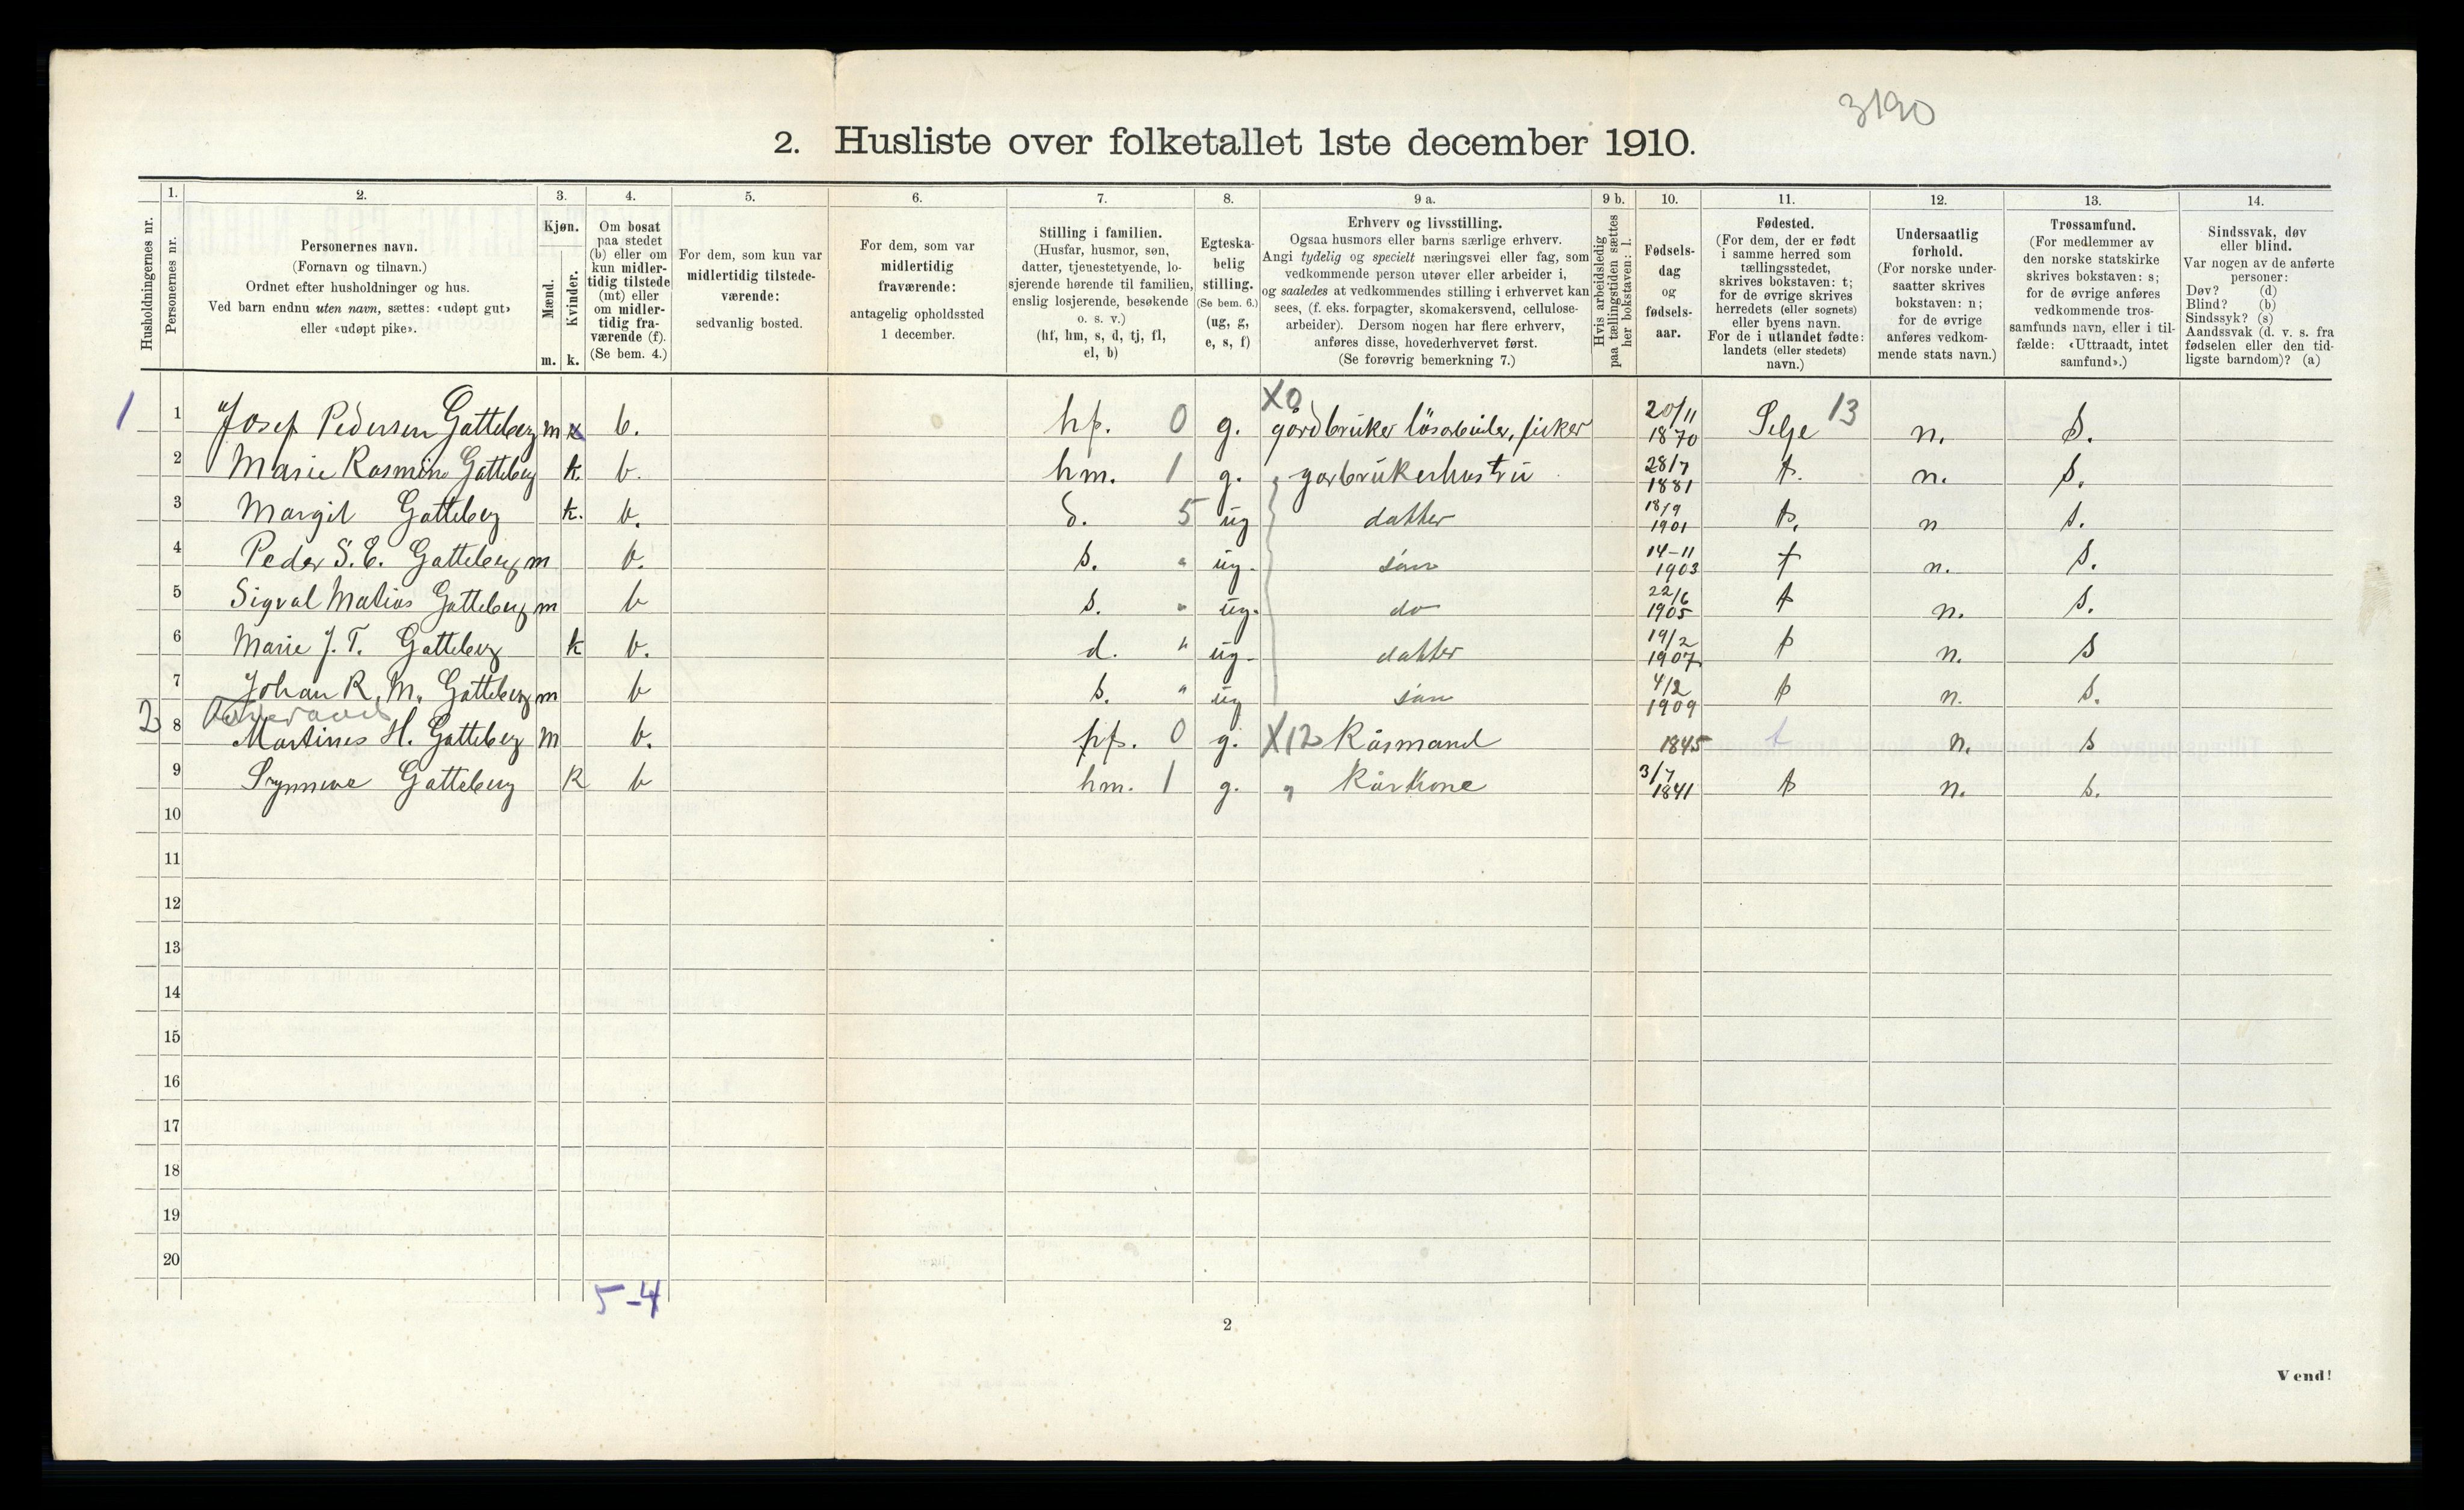 3190
2. Husliste over folketallet 1ste december 1910.
Husholdningernes nr.
1.
Personernes nr.
2.
Personernes navn.
(Fornavn og tilnavn.)
Ordnet efter husholdninger og hus.
Ved barn endnu uten navn, sættes: «udøpt gut»
eller «udøpt pike».
3.
Kjøn.
Mænd.
Kvinder.
m. k.
4.
Om bosat
paa stedet
(b) eller om
kun midler-
tidig tilstede
(mt) eller
om midler-
tidig fra-
værende (f).
(Se bem. 4.)
5.
For dem, som kun var
midlertidig tilstede-
værende:
sedvanlig bosted.
6.
For dem, som var
midlertidig
fraværende:
antagelig opholdssted
1 december.
7.
Stilling i familien.
(Husfar, husmor, søn,
datter, tjenestetyende, lo-
sjerende hørende til familien,
enslig losjerende, besøkende
o. s. v.)
(hf, hm, s, d, tj, fl,
el, b)
8.
Egteska-
belig
stilling.
(Se bem. 6.)
(ug, g,
e, s, f)
9 a.
Erhverv og livsstilling.
Ogsaa husmors eller barns særlige erhverv.
Angi tydelig og specielt næringsvei eller fag, som
vedkommende person utøver eller arbeider i,
og saaledes at vedkommendes stilling i erhvervet kan
sees, (f. eks. forpagter, skomakersvend, cellulose-
arbeider). Dersom nogen har flere erhverv,
anføres disse, hovederhvervet først.
(Se forøvrig bemerkning 7.)
9 b.
Hvis arbeidsledig
paa tællingstiden sættes
her bokstaven: l.
10.
Fødsels-
dag
og
fødsels-
aar.
11.
Fødested.
(For dem, der er født
i samme herred som
tællingsstedet,
skrives bokstaven: t;
for de øvrige skrives
herredets (eller sognets)
eller byens navn.
For de i utlandet fødte:
landets (eller stedets)
navn.)
12.
Undersaatlig
forhold.
(For norske under-
saatter skrives
bokstaven: n;
for de øvrige
anføres vedkom-
mende stats navn.)
13.
Trossamfund.
(For medlemmer av
den norske statskirke
skrives bokstaven: s;
for de øvrige anføres
vedkommende tros-
samfunds navn, eller i til-
fælde: «Uttraadt, intet
samfund».)
14.
Sindssvak, døv
eller blind.
Var nogen av de anførte
personer:
Døv? (d)
Blind? (b)
Sindssyk? (s)
Aandssvak (d. v. s. fra
fødselen eller den tid-
ligste barndom)? (a)
1 1 Josef Pedersen Gotteberg m k b. hf. 0 g. X0 gårdbruker løsarbeider, fisker 20/11 1870 Selje 13 n. S.
2 Marie Rasmine Gotteberg k. b. hm. 1 g. " garbrukerhustru 28/7 1881 t. n. s.
3 Margit Gotteberg k. b. d. 5 ug datter 18/9 1901 t. n s.
4 Peder S. E. Gotteberg m b. s. " ug. søn 14-11 1903 t n. s.
5 Sigval Matias Gotteberg m b s. " ug. do 22/6 1905 t n. s.
6 Marie J. T. Gotteberg k b. d. " ug. datter 19/2 1907 t n. s
7 Johan R. M. Gotteberg m b s. " ug søn 4/2 1909 t n. s.
2 8 Martines H. Gotteberg m b. hf. 0 g. X12 Kårmand 1845 t n. s
9 Synneve Gotteberg k b hm. 1 g. " Kårkone 3/7 1841 t n. s.
10
11
12
13
14
15
16
17
18
19
20
5-4
2
Vend!